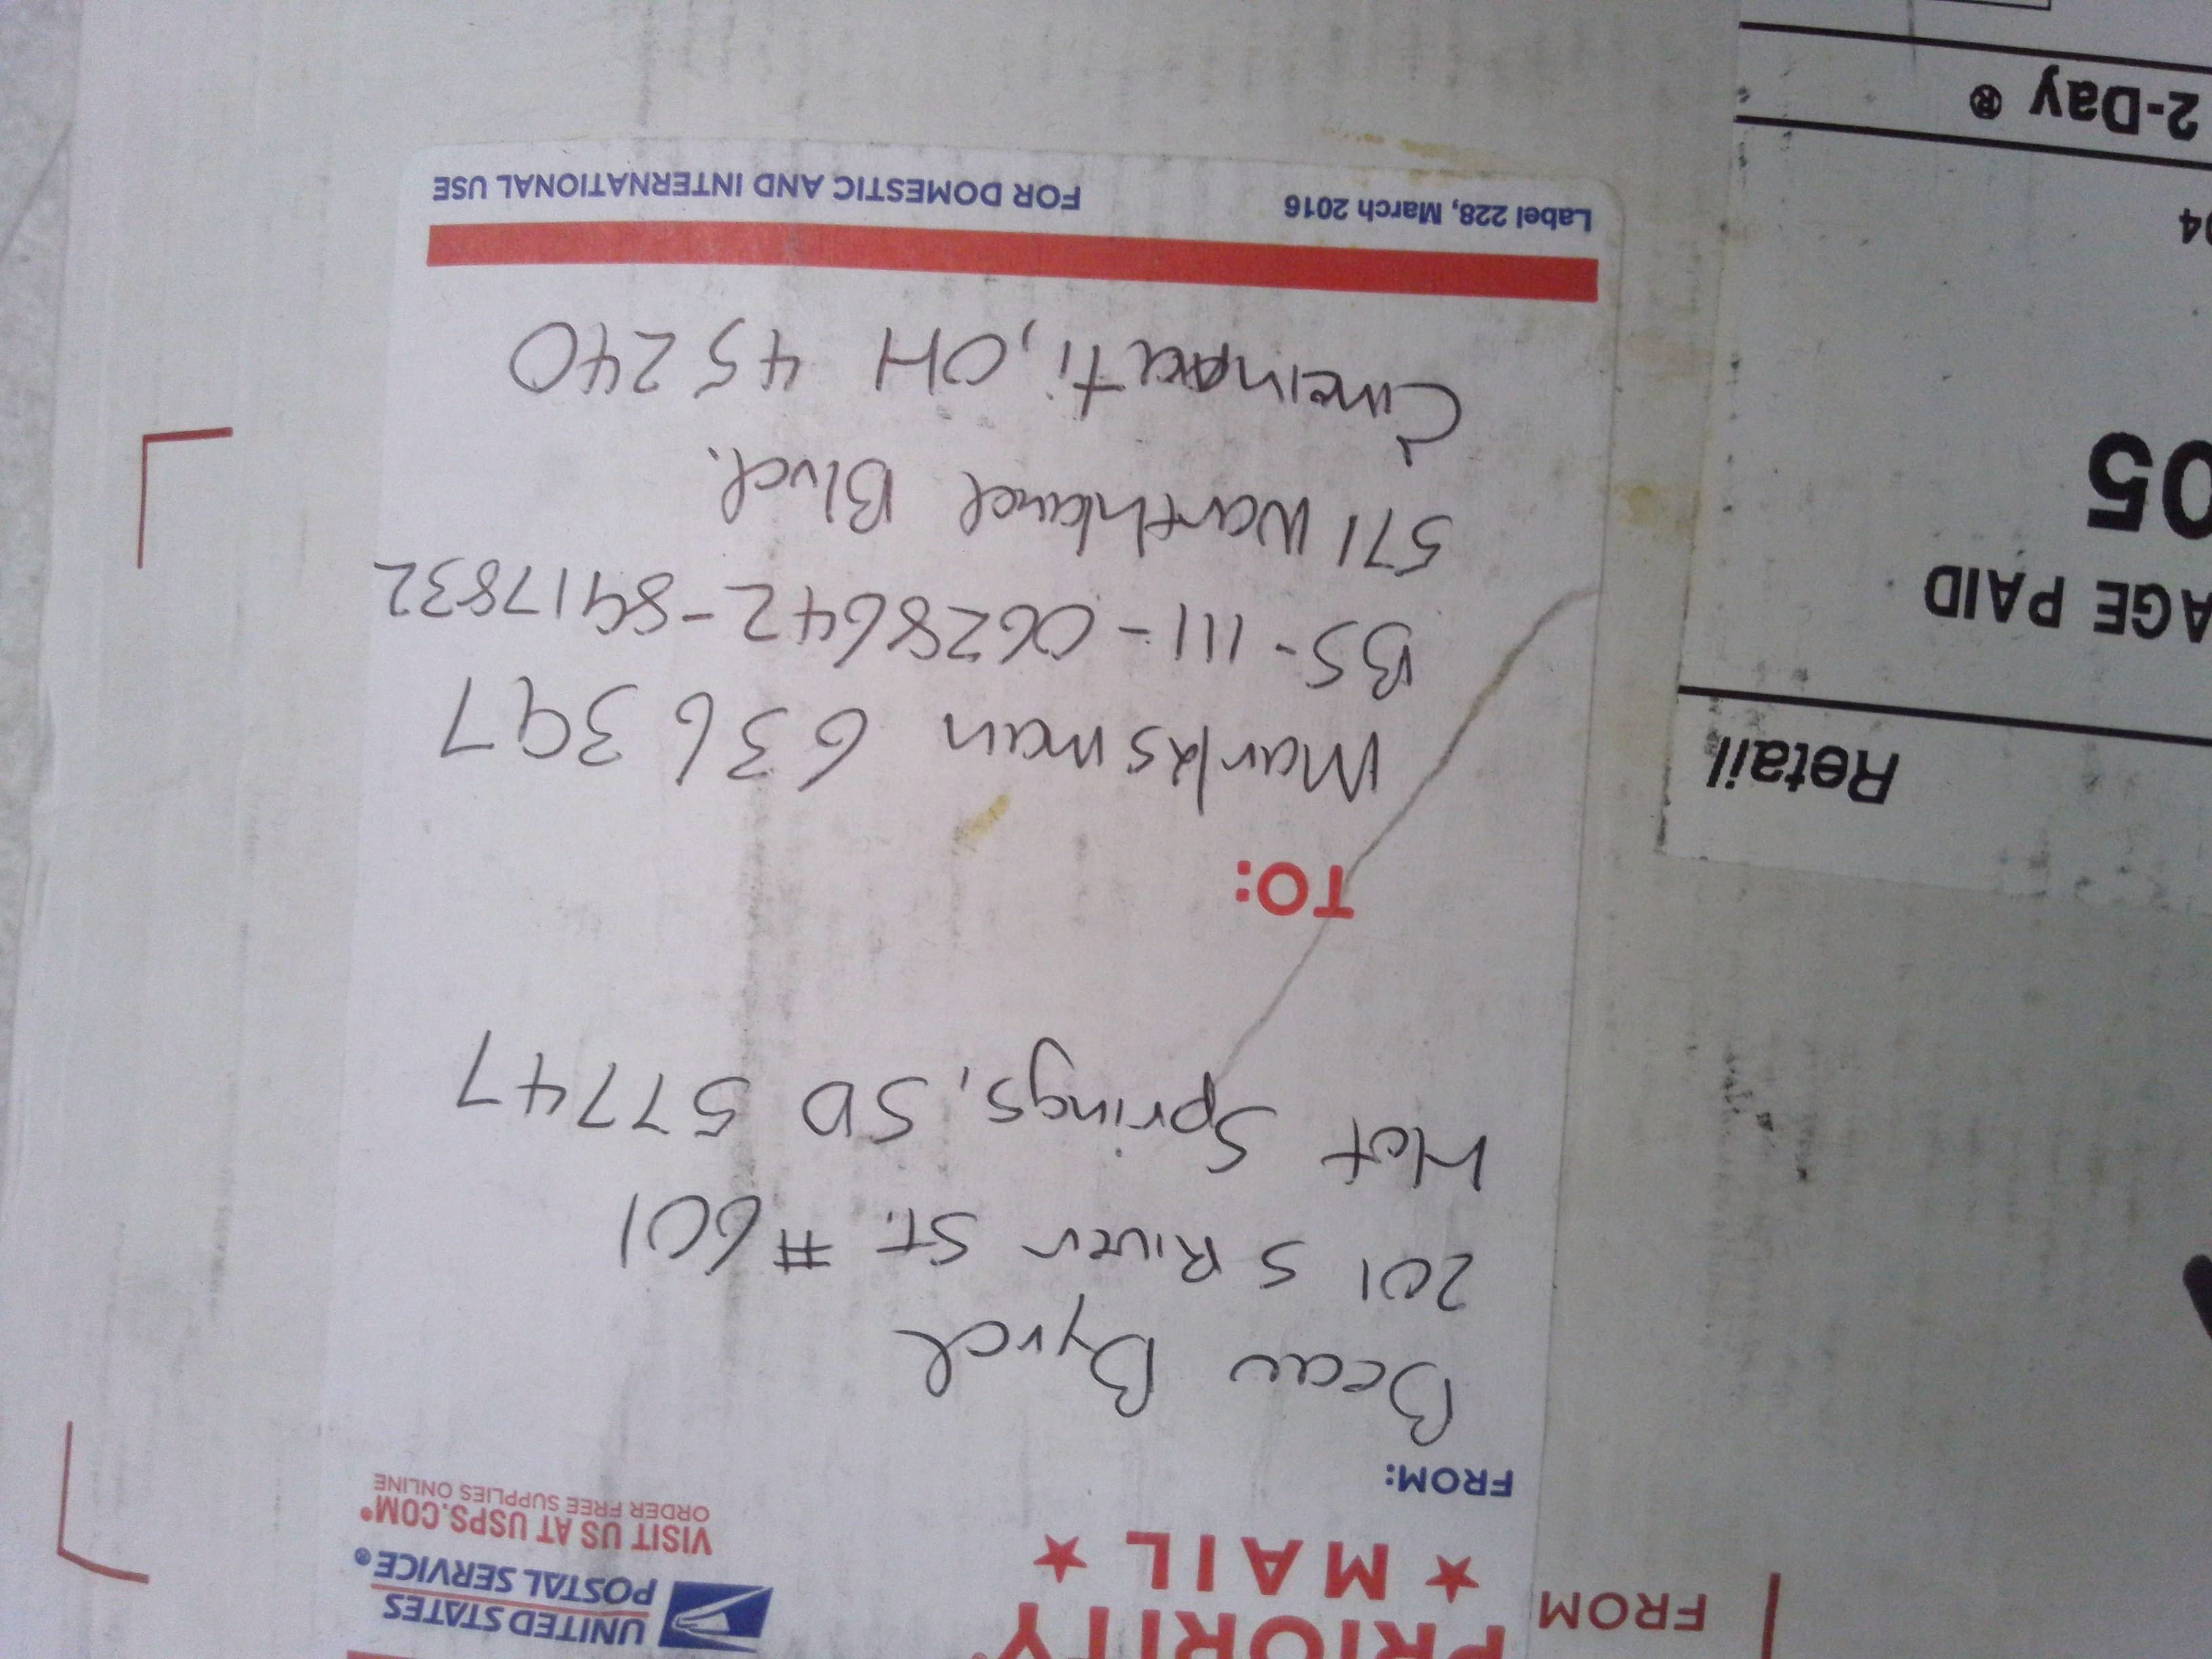 PRIORITY
★ MAIL ★
UNITED STATES
POSTAL SERVICE®
VISIT US AT USPS.COM®
ORDER FREE SUPPLIES ONLINE
FROM:
Beau Byrd
201 S River St. #601
Hot Springs, SD 57747
TO:
Marksman 636397
BS-111-0628642-8917832
571 Northland Blvd.
Cincinnati, OH 45240
Label 228, March 2016
FOR DOMESTIC AND INTERNATIONAL USE
FROM
Retail
AGE PAID
05
04
2-Day ®